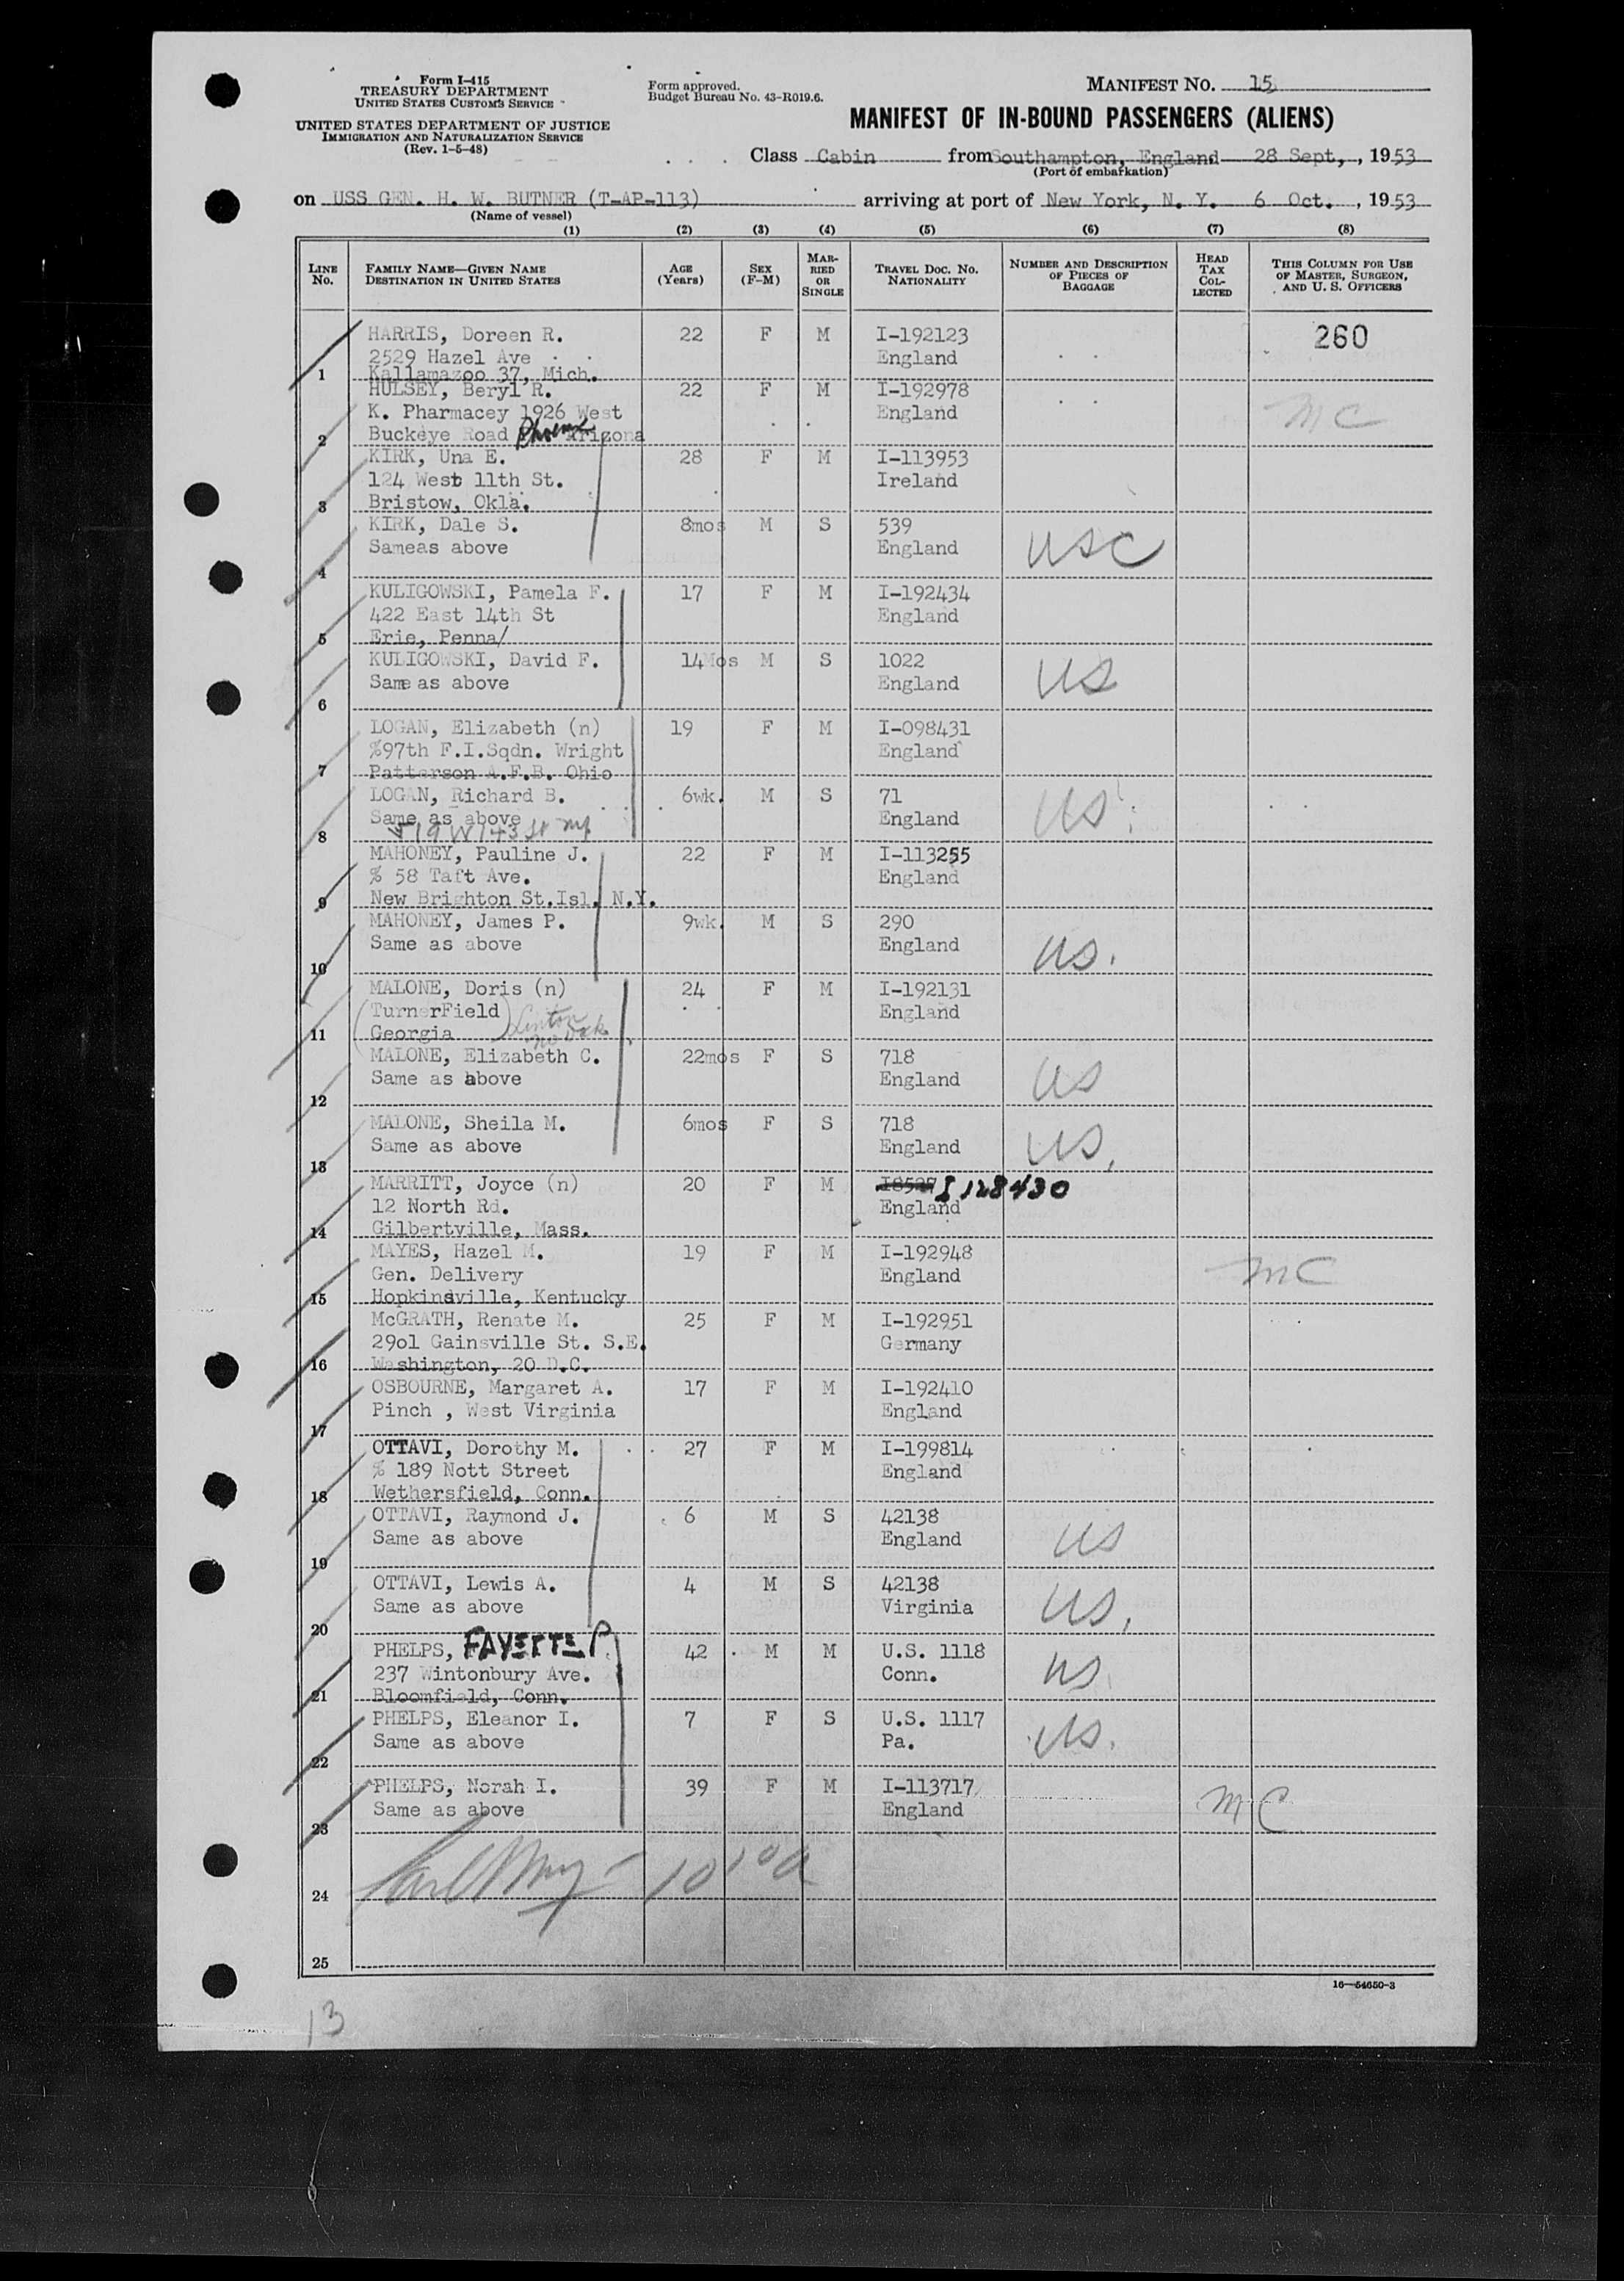 Form I-415
TREASURY DEPARTMENT
UNITED STATES CUSTOMS SERVICE
UNITED STATES DEPARTMENT OF JUSTICE
IMMIGRATION AND NATURALIZATION SERVICE
(Rev. 1-5-48)
Form approved.
Budget Bureau No. 43-R019.6.
MANIFEST NO. 15
MANIFEST OF IN-BOUND PASSENGERS (ALIENS)
Class Cabin from Southampton, England 28 Sept, , 1953
(Port of embarkation)
on USS GEN. H. W. BUTNER (T-AP-113) arriving at port of New York, N. Y. 6 Oct. , 1953
(Name of vessel)
(1) (2) (3) (4) (5) (6) (7) (8)
LINE NO. FAMILY NAME—GIVEN NAME DESTINATION IN UNITED STATES AGE (Years) SEX (F-M) MARRIED OR SINGLE TRAVEL DOC. NO. NATIONALITY NUMBER AND DESCRIPTION OF PIECES OF BAGGAGE HEAD TAX COLLECTED THIS COLUMN FOR USE OF MASTER, SURGEON, AND U. S. OFFICERS
HARRIS, Doreen R. 22 F M I-192123 260
2529 Hazel Ave England
1 Kallamazoo 37, Mich.
HULSEY, Beryl R. 22 F M I-192978
K. Pharmacey 1926 West England MC
2 Buckeye Road Phoenix Arizona
KIRK, Una E. 28 F M I-113953
124 West 11th St. Ireland
3 Bristow, Okla.
KIRK, Dale S. 8mos M S 539
Sameas above England USC
4
KULIGOWSKI, Pamela F. 17 F M I-192434
422 East 14th St England
5 Erie, Penna/
KULIGOWSKI, David F. 14Mos M S 1022
Same as above England US
6
LOGAN, Elizabeth (n) 19 F M I-098431
%97th F.I.Sqdn. Wright England
7 Patterson A.F.B. Ohio
LOGAN, Richard B. 6wk. M S 71
Same as above England US
8 519 W 143 St
MAHONEY, Pauline J. 22 F M I-113255
% 58 Taft Ave. England
9 New Brighton St.Isl. N.Y.
MAHONEY, James P. 9wk. M S 290
Same as above England US.
10
MALONE, Doris (n) 24 F M I-192131
(TurnerField) Linton England
11 Georgia no Dak.
MALONE, Elizabeth C. 22mos F S 718
Same as above England US
12
MALONE, Sheila M. 6mos F S 718
Same as above England US.
13
MARRITT, Joyce (n) 20 F M I 128430
12 North Rd. England
14 Gilbertville, Mass.
MAYES, Hazel M. 19 F M I-192948
Gen. Delivery England MC
15 Hopkinsville, Kentucky
McGRATH, Renate M. 25 F M I-192951
29o1 Gainsville St. S.E. Germany
16 Washington, 20 D.C.
OSBOURNE, Margaret A. 17 F M I-192410
Pinch , West Virginia England
17
OTTAVI, Dorothy M. 27 F M I-199814
% 189 Nott Street England
18 Wethersfield, Conn.
OTTAVI, Raymond J. 6 M S 42138
Same as above England US
19
OTTAVI, Lewis A. 4 M S 42138
Same as above Virginia US.
20
PHELPS, FAYETTE P. 42 M M U.S. 1118
237 Wintonbury Ave. Conn. US
21 Bloomfield, Conn.
PHELPS, Eleanor I. 7 F S U.S. 1117
Same as above Pa. US.
22
PHELPS, Norah I. 39 F M I-113717
Same as above England MC
23
24
25
16—54650-3
13